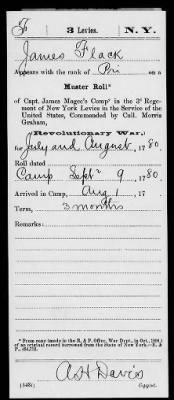 F 3 Levies. N.Y.
James Flack
Appears with the rank of Pri on a
Muster Roll*
of Capt. James Magee's Comp'y in the 3d Regi-
ment of New York Levies in the Service of the
United States, Commended by Coll. Morris
Graham,
(Revolutionary War,)
for July and August, 1780.
Roll dated
Camp Sept 9, 1780.
Arrived in Camp, Aug 1, 17
Term, 3 months
Remarks:
*From copy (made in the R. & P. Office, War Dept., in Oct.,
of an original record borrowed from the State of New York.—R. &
P.
A H Davis
Copyist.